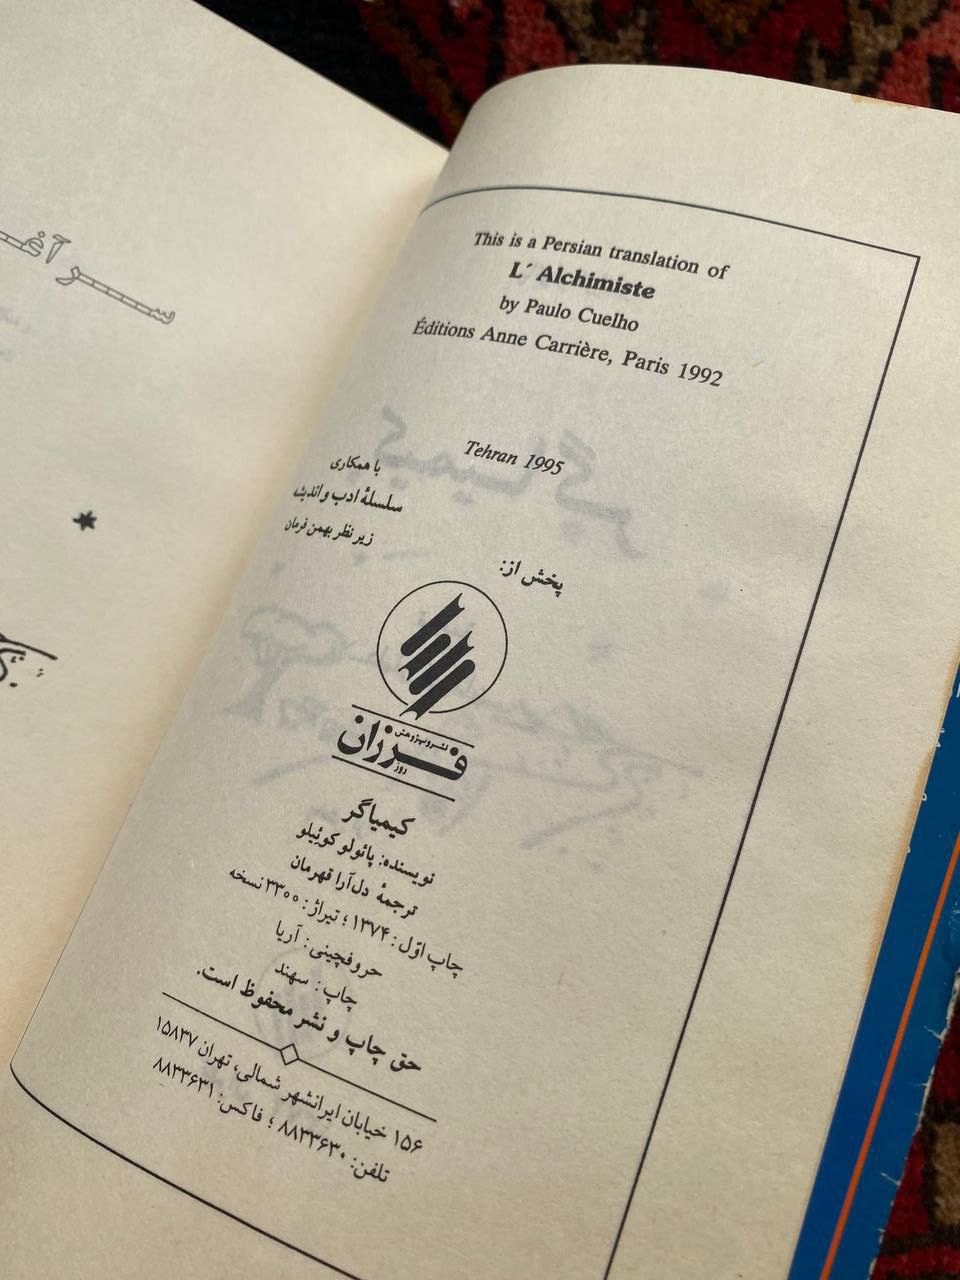 سر آغـ
*
This is a Persian translation of
L´ Alchimiste
by Paulo Cuelho
Éditions Anne Carrière, Paris 1992
Tehran 1995
با همکاری
سلسلهٔ ادب و اندیشه
زیر نظر بهمن فرمان
پخش از:
نشر و پژوهش
فرزان
روز
کیمیاگر
نویسنده: پائولو کوئیلو
ترجمهٔ دل‌آرا قهرمان
چاپ اوّل: ۱۳۷۴؛ تیراژ: ۳۳۰۰ نسخه
حروفچینی: آریا
چاپ: سهند
حق چاپ و نشر محفوظ است.
۱۵۶ خیابان ایرانشهر شمالی، تهران ۱۵۸۳۷
تلفن: ۸۸۳۳۶۳۰؛ فاکس: ۸۸۳۳۶۳۱